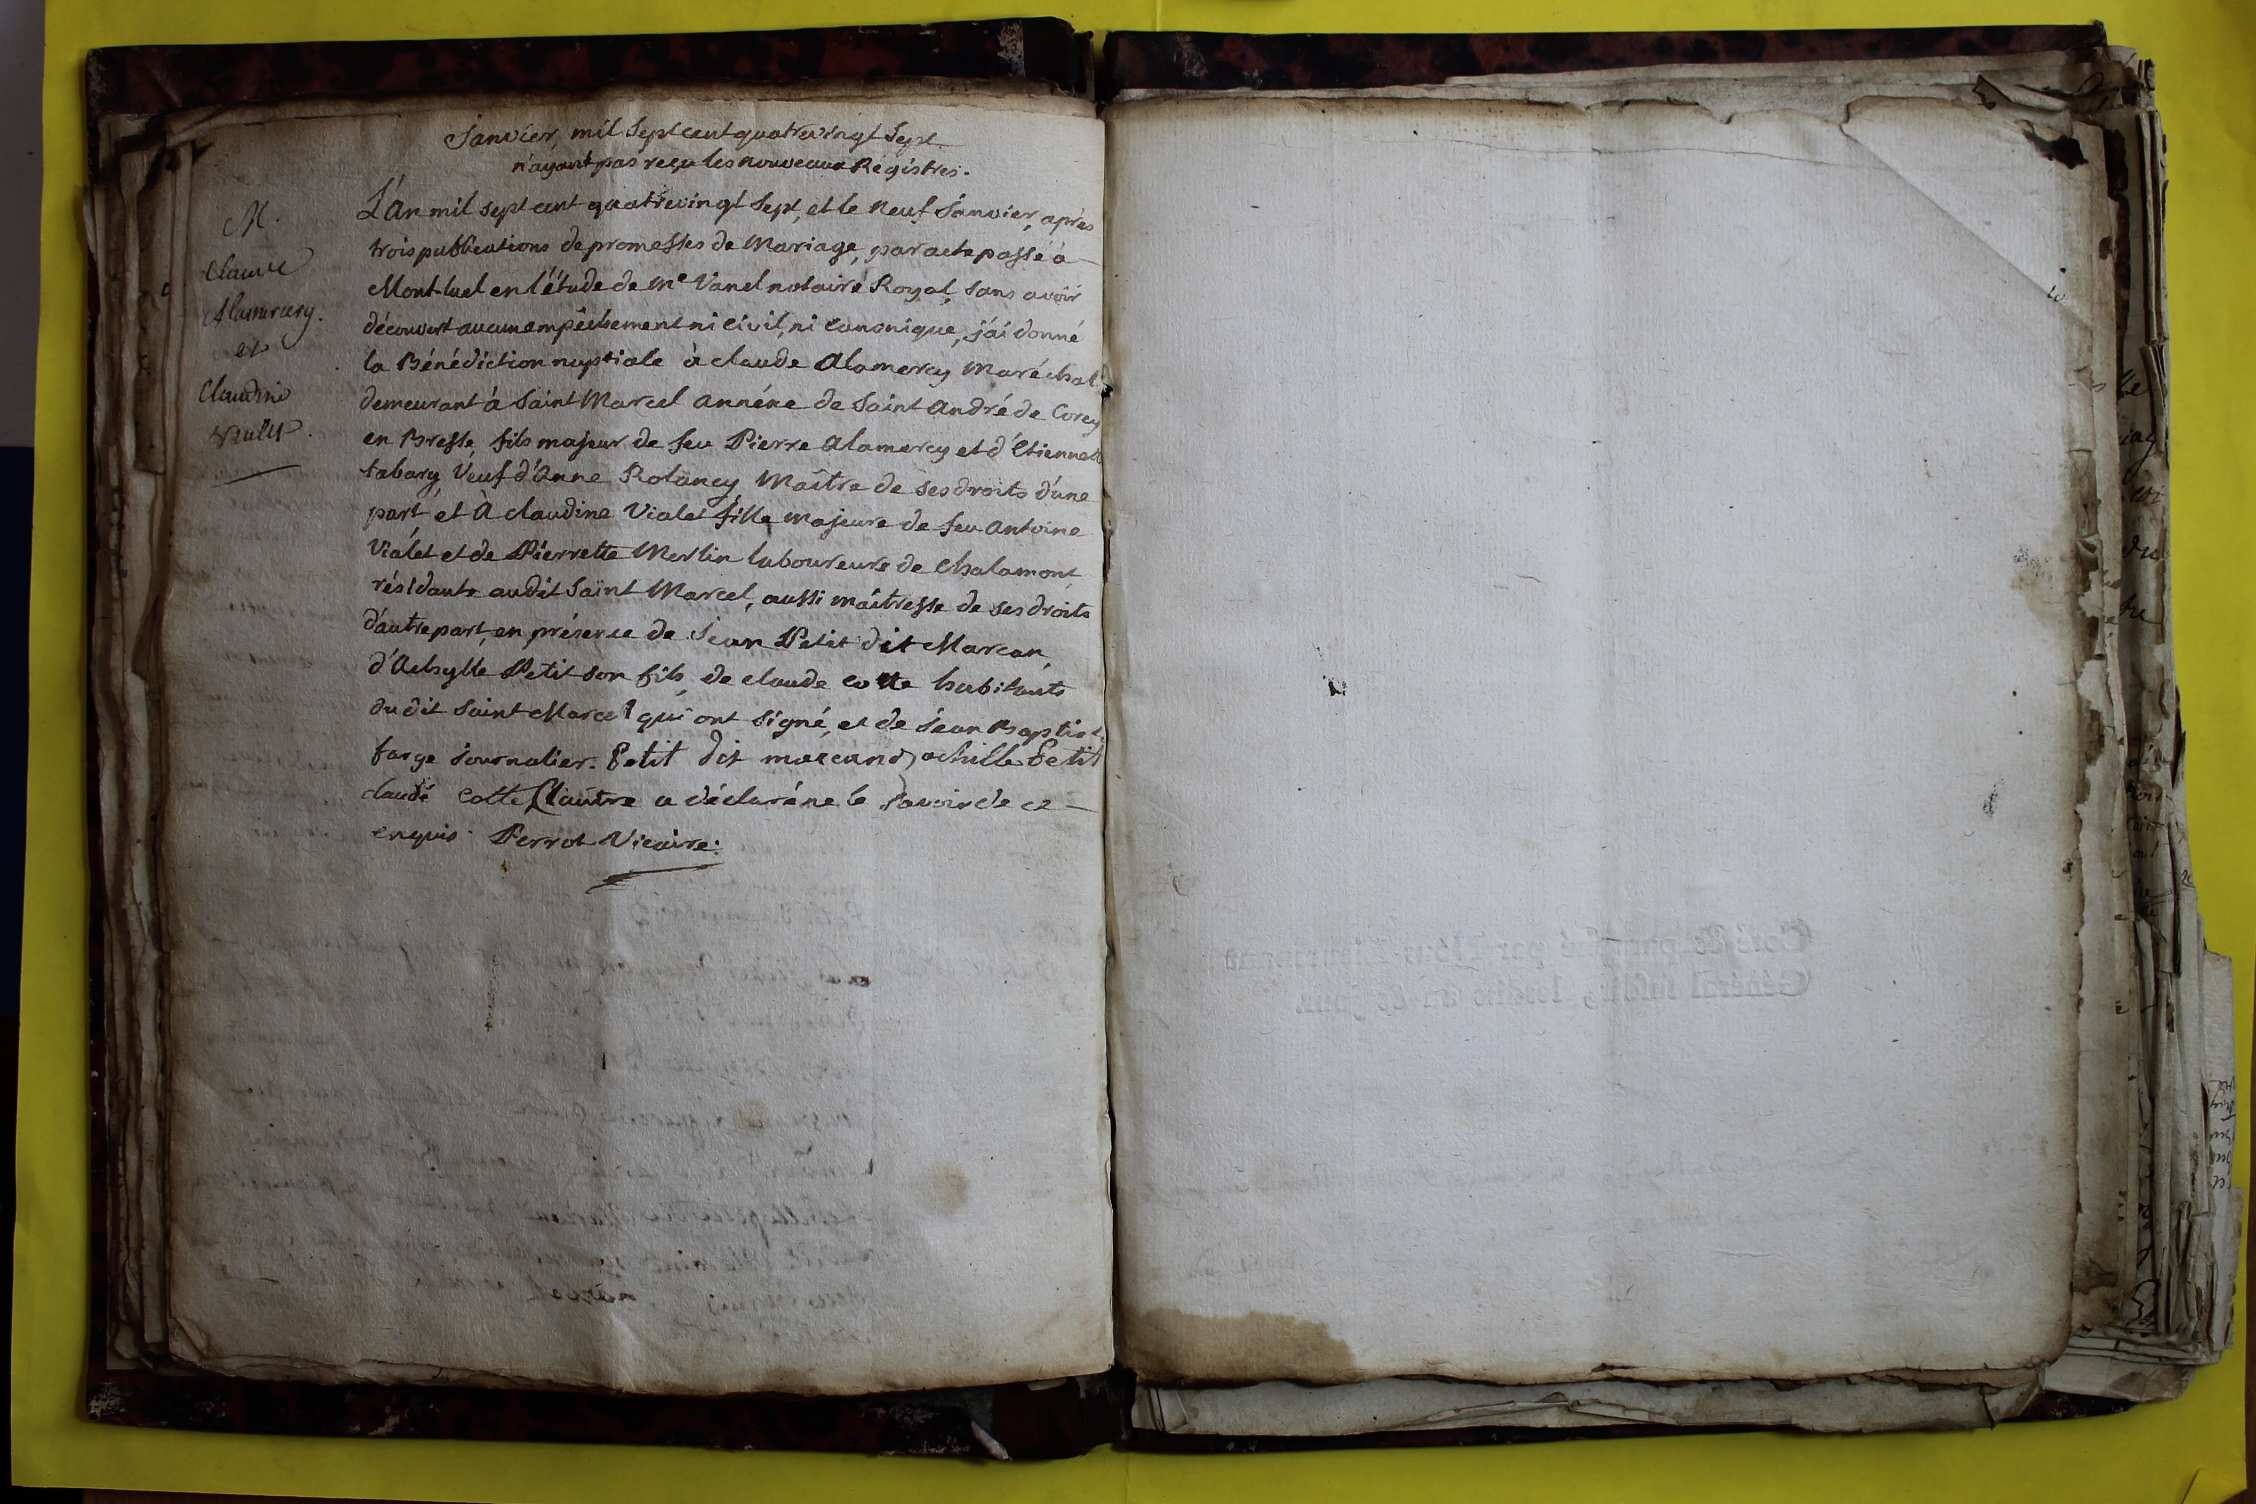 Janvier, mil Sept cent quatrevingt Sept.
n'ayant pas reçu les nouveaux Régistres.
M.
Claude
Alamercery.
et
Claudine
L'An mil sept cent quatrevingt Sept, et le Neuf Janvier, après
trois publications de promesses de Mariage, par acte passé à
Mont-luel en l'étude de Me Vanel notaire Royal, sans avoir
découvert aucun empêchement ni civil, ni canonique, j'ai donné
la Bénédiction nuptiale à claude Alamercy Maréchal
demeurant à Saint Marcel annéxe de Saint André de Corcy
en Bresse, fils majeur de feu Pierre Alamercy et d'Etiennette
tabary Veuf d'Anne Rolancy Maître de ses droits d'une
part, et À claudine Vialet fille majeure de feu Antoine
Vialet et de Pierrette Merlin laboureurs de Chalamont
résidante audit Saint Marcel, aussi maîtresse de ses droits
d'autre part, en présence de Jean Petit dit Marcan,
d'Achylle Petit son fils, de claude cotte habitants
du dit Saint Marcel qui ont signé, et de Jean Baptiste
farge Journalier. Petit dit marcand achille Petit
claude Cotte L'autre a déclaré ne le savoir de ce
enquis. Perrot Vicaire.